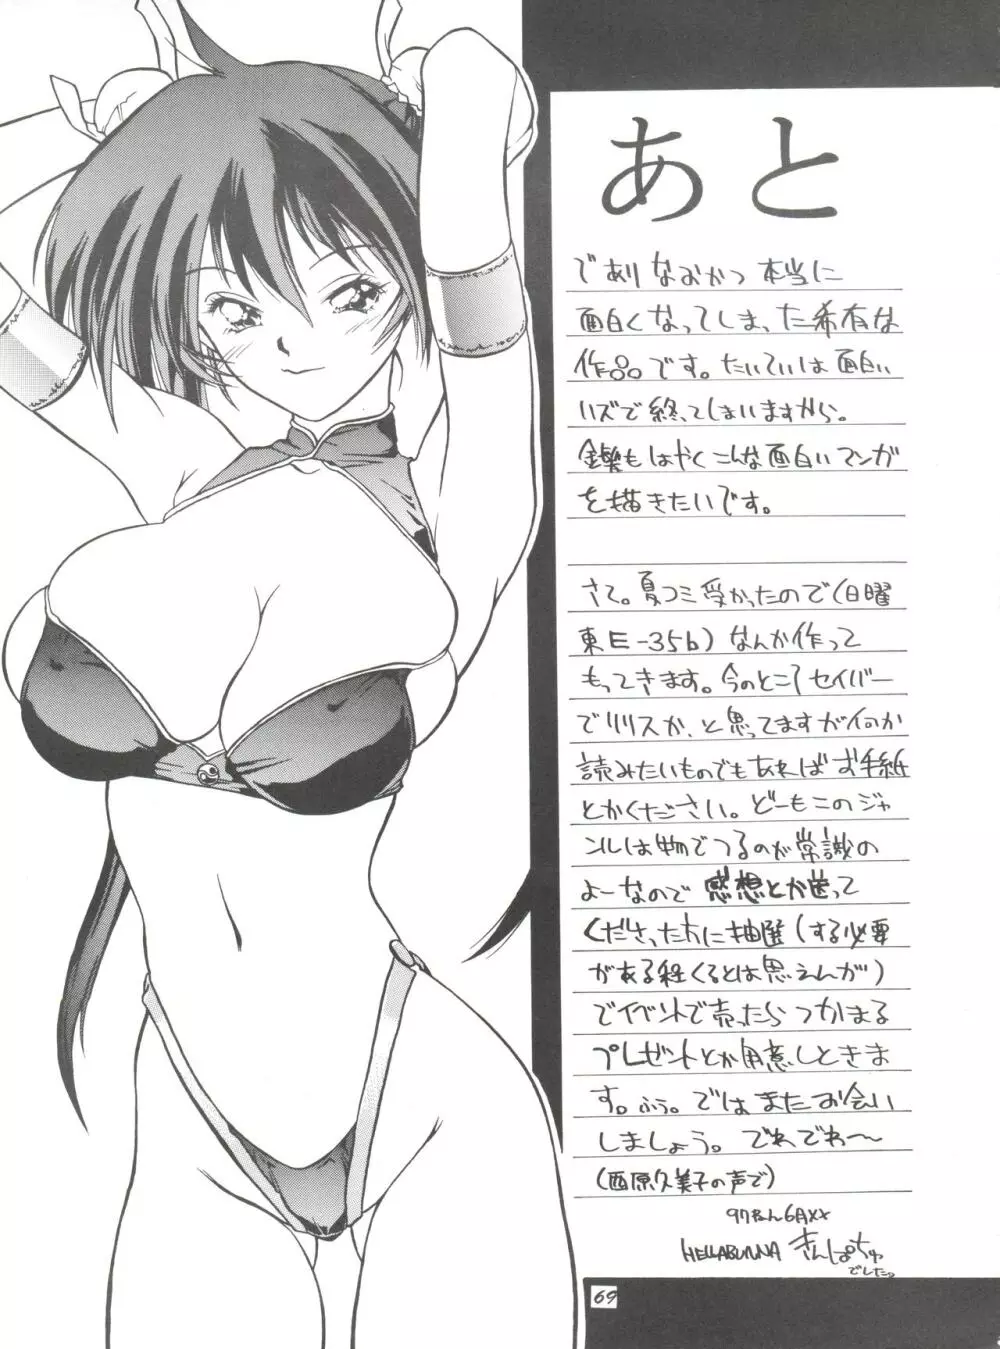 あと
でありなおかつ本当に
面白くなってしまった希有な
作品です。たいていは面白い
ハズで終ってしまいますから。
も はやくこんな面白いマンガ
を描きたいです。
さて。夏コミ受かったので(日曜
東E-35b)なんか作って
もってきます。今のところセイバー
でリリスか、と思ってますが何か
読みたいものでもあればお手紙
とかください。どーもこのジャ
ンルは物でつるのが常識の
よーなので 感想とか送って
くださった方に抽選(する必要
がある程くるとは思えんが)
でイベントで売ったら つかまる
プレゼントとか用意しときま
す。ふぅ。ではまたお会い
しましょう。でわでわ〜
(西原久美子の声で)
97ねん6月××
HELLABUNNA きんぱちゅ
でしたっ
69